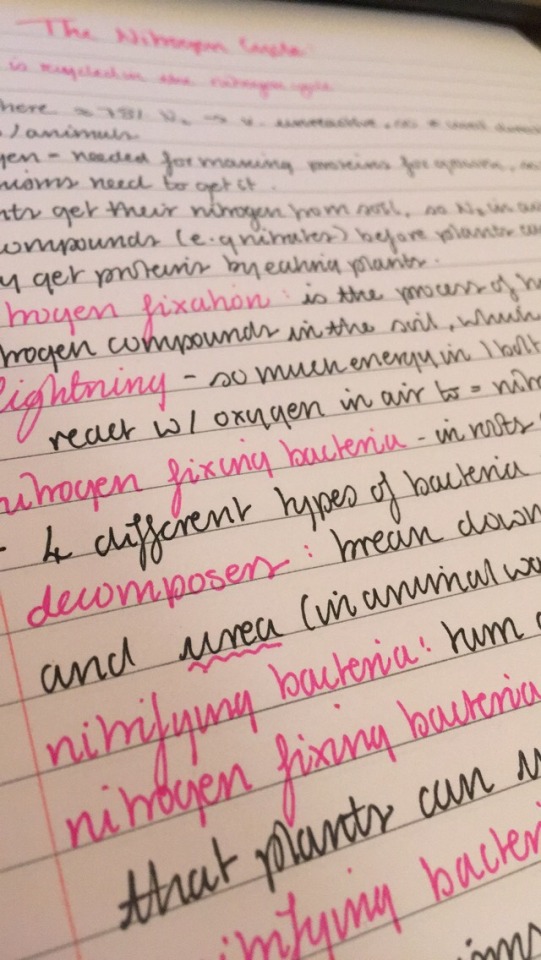 The Nitrogen Cycle:
is recycled in the nitrogen cycle
here ≈ 78% N₂ → v. unreactive, so
/animals
gen - needed for making proteins for growth, so
nisms need to get it.
nts get their nitrogen from soil, so N₂ in
ompounds (e.g nitrates) before plants
y get proteins by eating plants.
trogen fixation: is the process of
trogen compounds in the soil, which
lightning - so much energy in 1 bolt
react w/ oxygen in air to = nitr
nitrogen fixing bacteria - in roots
- 4 different types of bacteria
decomposers: break down
and urea (in animal wa
nitrifying bacteria: turn
nitrogen fixing bacteria
that plants can u
itrifying bacter